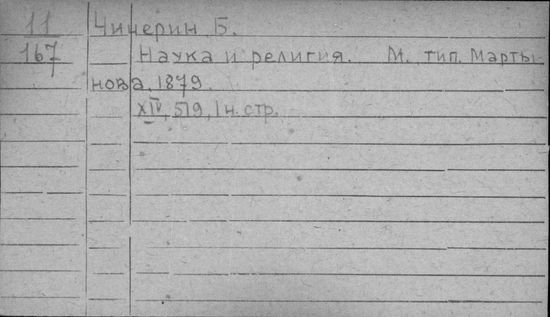 11
167
Чичерин Б.
Наука и религия. М. тип. Марты
нова, 1879.
XIV, 519, 1 н. стр.